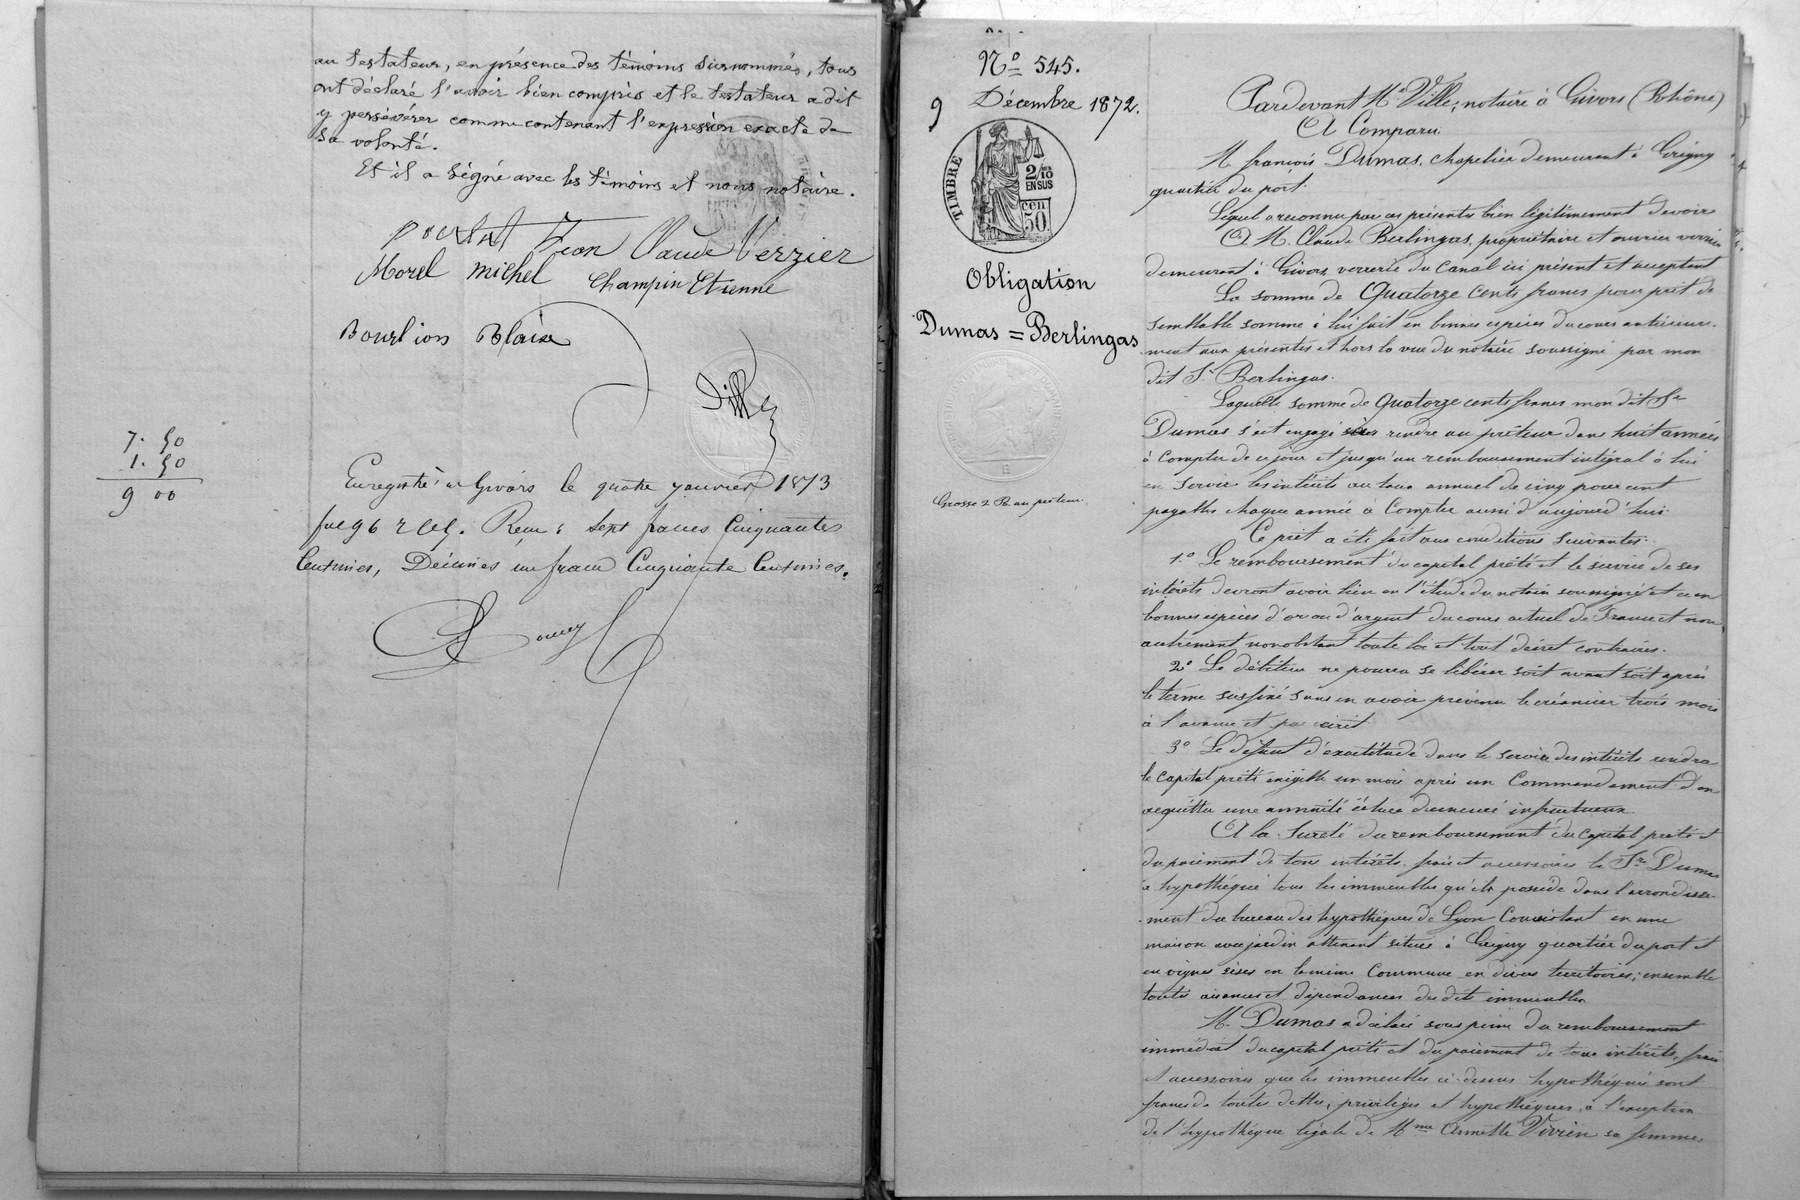 au testateur, en présence des témoins susnommés, tous
ont déclaré l'avoir bien compris et le testateur a dit
y persévérer comme contenant l'expression exacte de
sa volonté.
Et il a signé avec les témoins et nous notaire.
Jean Claude Verzier
Morel Michel Champin Etienne
Bourlion Blaise
Ville
7. 50
1. 50
9 00
Enregistré à Givors le quatre janvier 1873
fol 96 r c. Reçu : sept francs Cinquante
Centimes, Décimes un franc Cinquante Centimes.
N° 545.
9 Décembre 1872.
TIMBRE
2/10
EN SUS
50 cen
Obligation
Dumas = Berlingas
Grosse 2 R. au prêteur.
Pardevant Me Ville, notaire à Givors (Rhône)
A Comparu
M. françois Dumas, chapelier demeurant à Grigny
quartier du port.
Lequel a reconnu par ces présentes bien légitimement devoir
A M. Claude Berlingas, propriétaire et ouvrier verrier
demeurant à Givors, verrerie du Canal ici présent et acceptant
La somme de Quatorze Cents francs pour prêt de
semblable somme à lui fait en bonnes espèces du cours antérieure-
ment aux présentes et hors la vue du notaire soussigné par mon
dit Sr. Berlingas.
Laquelle somme de Quatorze cents francs mon dit Sr
Dumas s'est engagé à rendre au prêteur dans huit années
à Compter de ce jour et jusqu'au remboursement intégral à lui
en servir les intérêts au taux annuel de cinq pour cent
payables chaque année à Compter aussi d'aujourd'hui.
Ce prêt a été fait aux conditions suivantes :
1° Le remboursement du capital prêté et le service de ses
intérêts devront avoir lieu en l'étude du notaire soussigné et en
bonnes espèces d'or ou d'argent du cours actuel de France et non
autrement nonobstant toute loi et tout décret contraires.
2° Le débiteur ne pourra se libérer soit avant soit après
le terme susfixé sans en avoir prévenu le créancier trois mois
à l'avance et par écrit.
3° Le défaut d'exactitude dans le service des intérêts rendra
le capital prêté exigible un mois après un Commandement d'en
acquitter une annuité échue demeuré infructueux
A la sureté du remboursement du Capital prêté et
du paiement de tous intérêts, frais et accessoires le Sr. Dumas
a hypothéqué tous les immeubles qu'il possède dans l'arrondisse-
ment du bureau des hypothèques de Lyon Consistant en une
maison avec jardin attenant située à Grigny quartier du port et
en vignes sises en la même Commune en divers territoires; ensemble
toutes aisances et dépendances des dits immeubles
M. Dumas a déclaré sous peine du remboursement
immédiat du capital prêté et du paiement de tous intérêts, frais
et accessoires que les immeubles ci-dessus hypothéqués sont
francs de toutes dettes, privilèges et hypothèques, à l'exception
de l'hypothèque légale de Mme Vivien sa femme